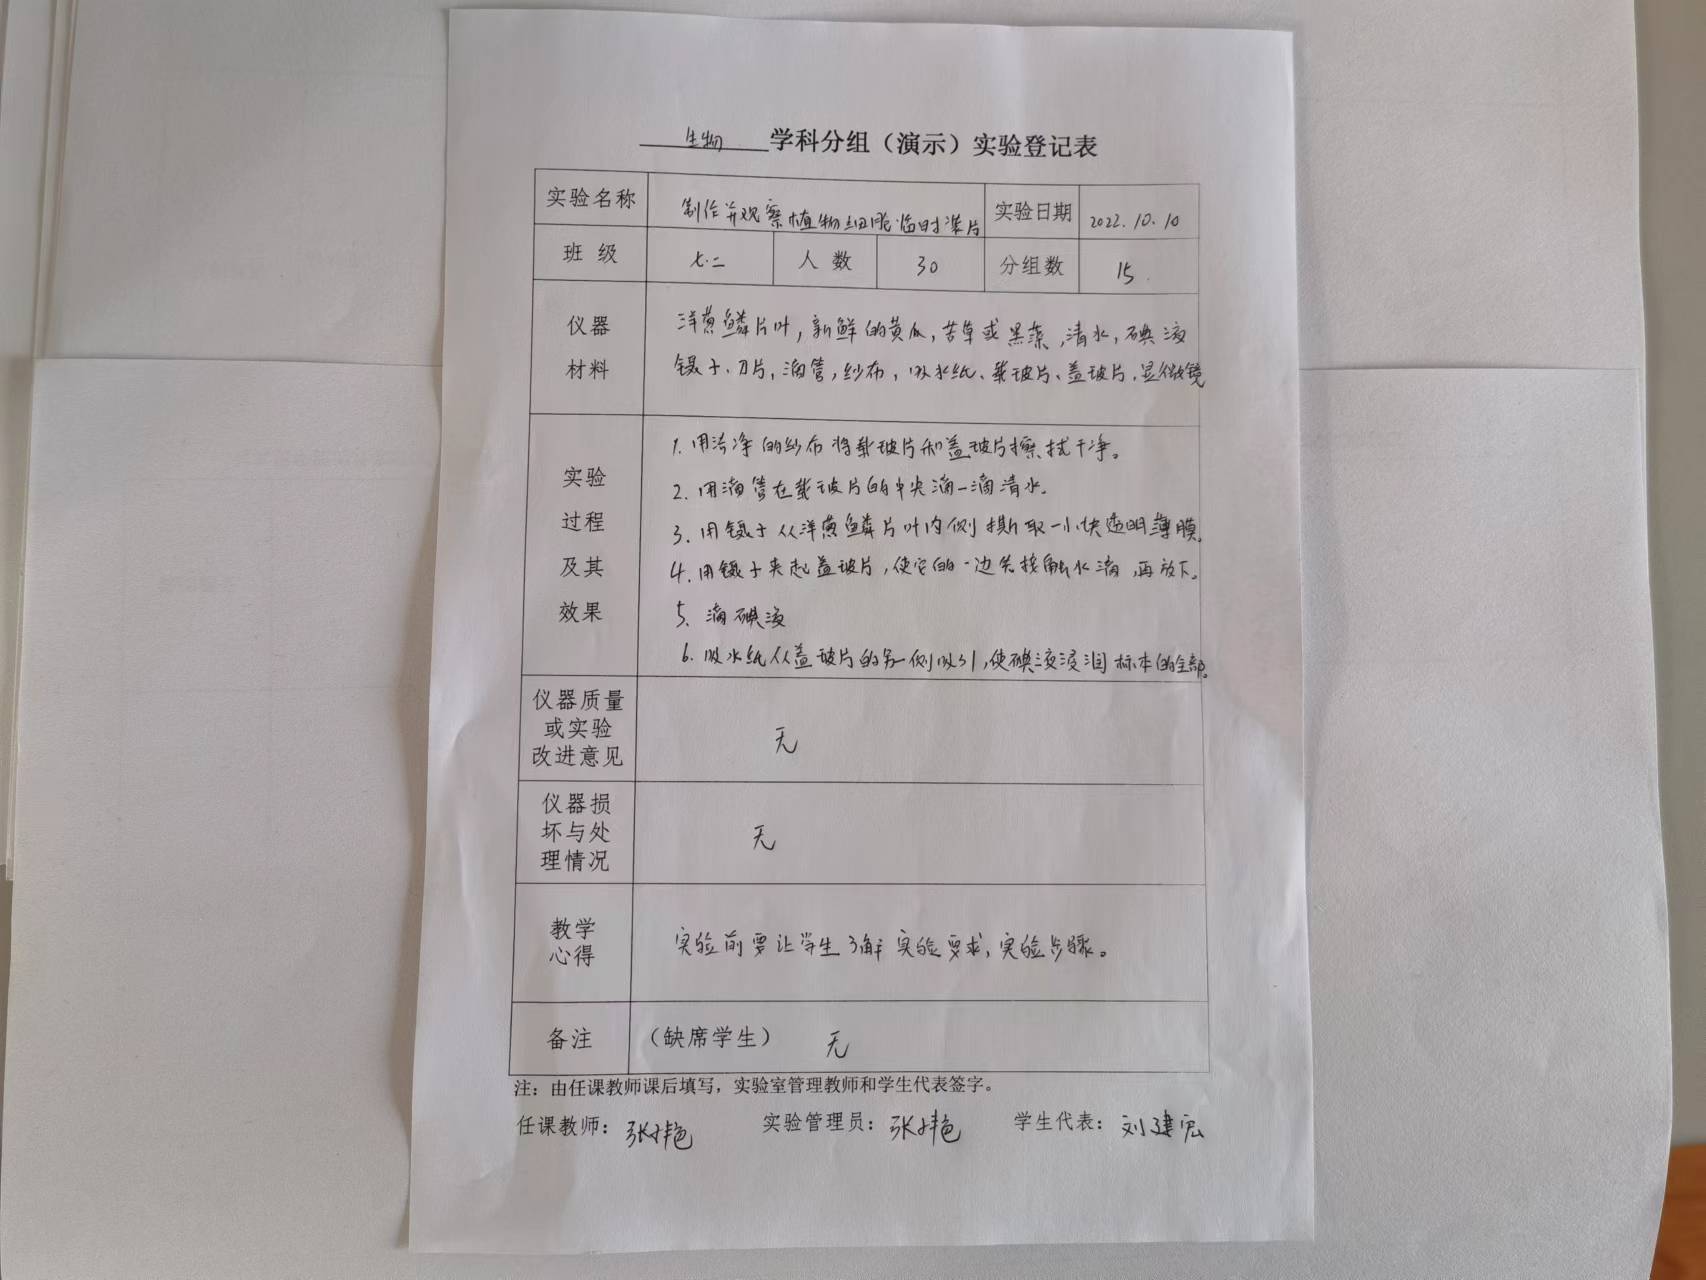 生物 学科分组（演示）实验登记表
实验名称 制作并观察植物细胞临时装片 实验日期 2022.10.10
班 级 七.二 人 数 30 分组数 15.
仪器
材料
洋葱鳞片叶，新鲜的黄瓜，苦草或黑藻，清水，碘液
镊子、刀片，滴管，纱布，吸水纸、载玻片、盖玻片、显微镜
实验
过程
及其
效果
1. 用洁净的纱布将载玻片和盖玻片擦拭干净。
2. 用滴管在载玻片的中央滴一滴清水.
3. 用镊子从洋葱鳞片叶内侧撕取一小块透明薄膜.
4. 用镊子夹起盖玻片，使它的一边先接触水滴，再放下。
5. 滴碘液
6. 吸水纸从盖玻片的另一侧吸引，使碘液浸润标本的全部。
仪器质量
或实验
改进意见
无
仪器损
坏与处
理情况
无
教学
心得
实验前要让学生了解实验要求，实验步骤。
备注 （缺席学生） 无
注：由任课教师课后填写，实验室管理教师和学生代表签字。
任课教师： 实验管理员： 学生代表：刘建宏